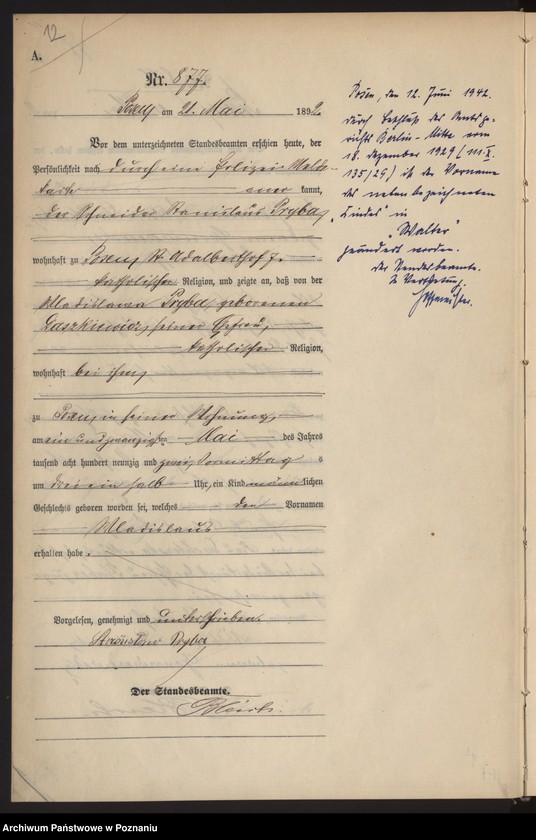 12
A.
Nr. 877.
Posen am 21. Mai 1892
Vor dem unterzeichneten Standesbeamten erschien heute, der
Persönlichkeit nach durch eine Polizei-Melde-
karte kannt,
der Schneider Stanislaus Pryba,
wohnhaft zu Posen, St. Adalberthof 7.
katholischer Religion, und zeigte an, daß von der
Wladislawa Pryba, geborenen
Daszkiewicz, seiner Ehefrau,
katholischer Religion,
wohnhaft bei ihm,
zu Posen, in seiner Wohnung,
am ein und zwanzigsten Mai des Jahres
tausend acht hundert neunzig und zwei, Vormittags
um drei ein halb Uhr, ein Kind männlichen
Geschlechts geboren worden sei, welches den Vornamen
Wladislaus
erhalten habe.
Vorgelesen, genehmigt und unterschrieben.
Stanisław Pryba
Der Standesbeamte.
Posen, den 12. Juni 1942.
Durch Beschluß des Amtsge-
richts Berlin-Mitte vom
18. Dezember 1929 (111. X.
135/29) ist der Vorname
des nebenbezeichneten
Kindes in
"Walter"
geändert worden.
Der Standesbeamte.
In Vertretung
Archiwum Państwowe w Poznaniu